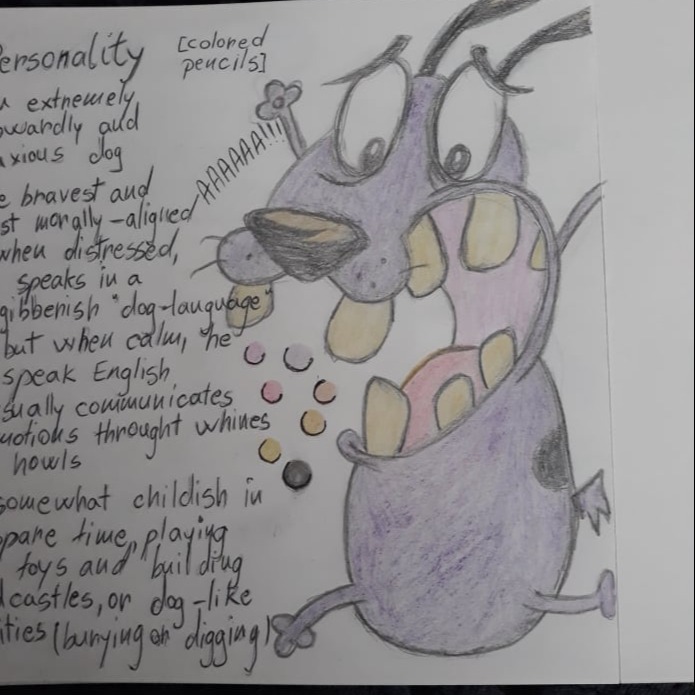 ersonality
[colored
pencils]
extremely
owardly and
xious dog
AAAAAA!!!
e bravest and
st morally-aligned
when distressed,
speaks in a
gibbenish "dog-language"
but when calm, he
speak English
sually communicates
motions throught whines
howls
somewhat childish in
pare time, playing
toys and building
castles, or dog-like
ities (burying or digging)